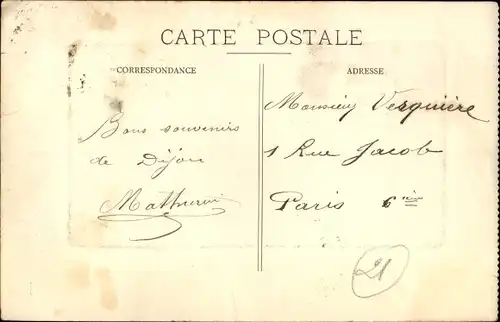 CARTE POSTALE
CORRESPONDANCE
ADRESSE
Bons souvenirs
de Dijon
Mathurin
Monsieur Verguière
1 Rue Jacob
Paris 6ième
21